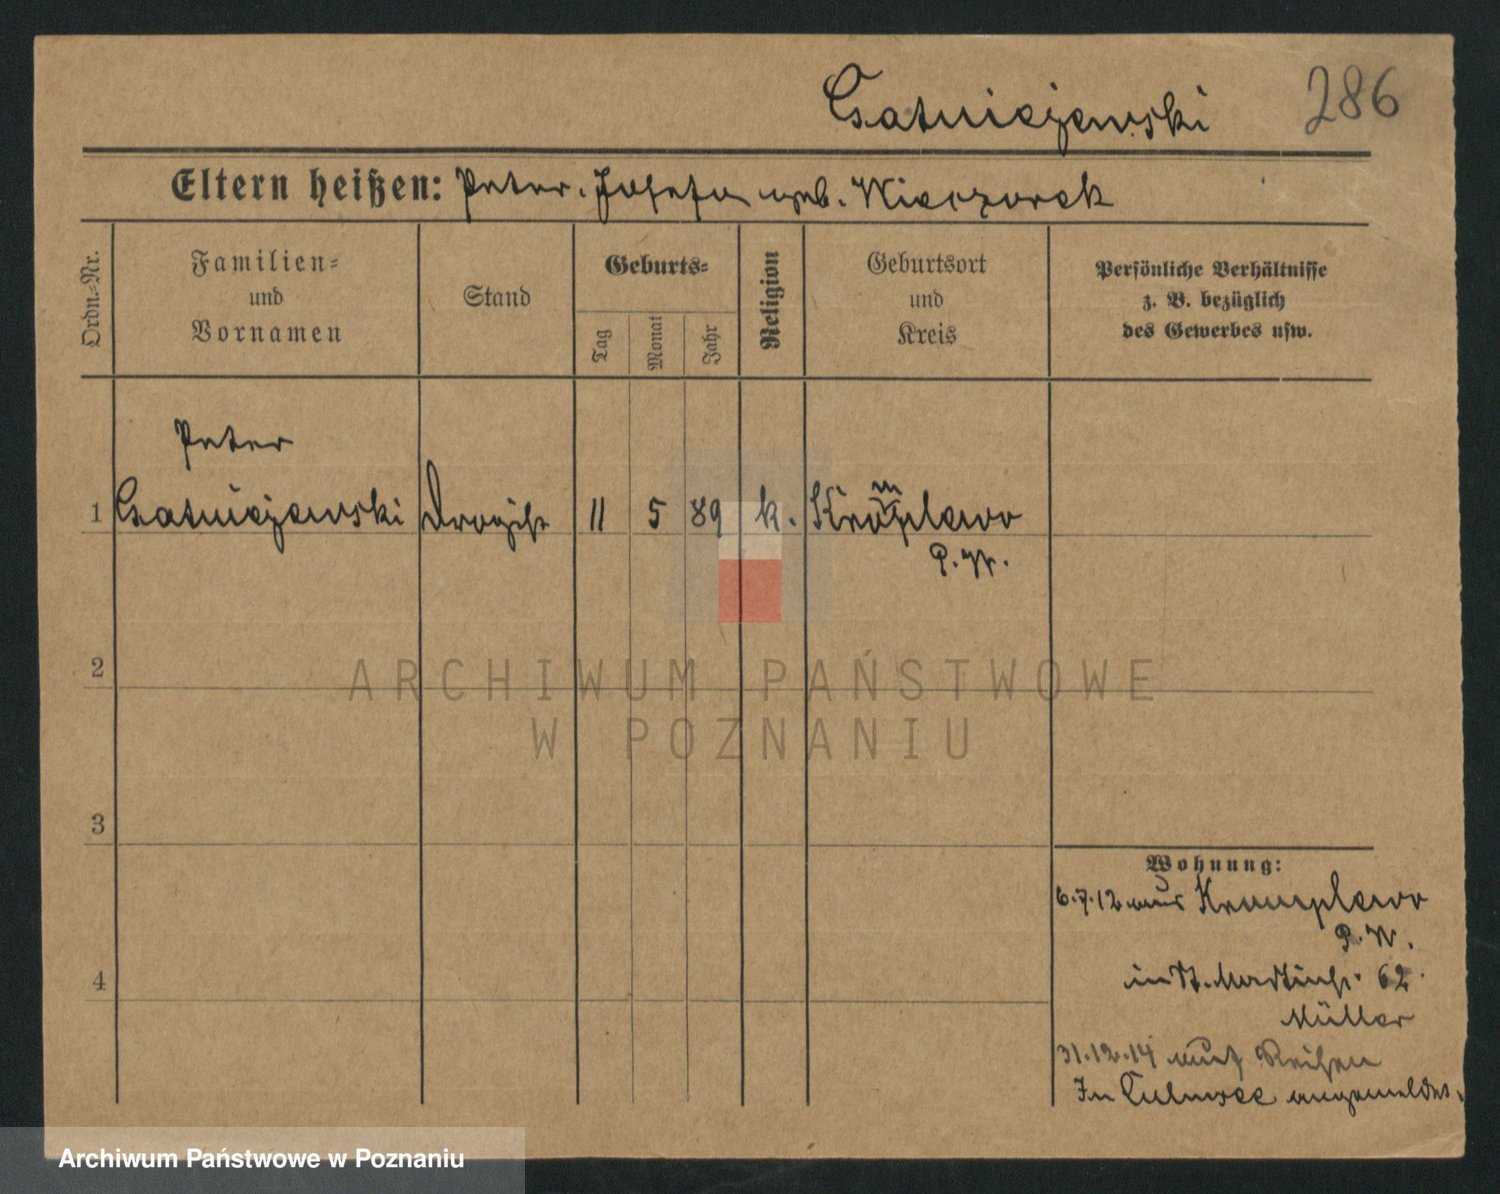 Czatuiejewski 286
Eltern heißen: Peter. Josefa geb. Wieczorek
Ordn.-Nr.
Familien-
und
Vornamen
Stand
Geburts-
Tag
Monat
Jahr
Religion
Geburtsort
und
Kreis
Persönliche Verhältnisse
z. B. bezüglich
des Gewerbes usw.
Peter
1 Drogist 11 5 89 k. Kramplewo
P. W.
2
3
4
Wohnung:
6.7.12 aus Kramplewo
P. W.
in St. Martinstr. 62
Müller
31.12.14 auf Reisen
In Culmsee angemeldet.
ARCHIWUM PAŃSTWOWE
W POZNANIU
Archiwum Państwowe w Poznaniu